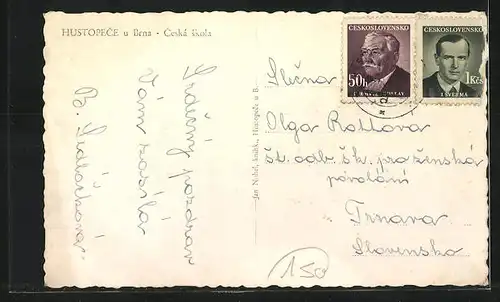 HUSTOPEČE u Brna - Česká škola
Srdečný pozdrav
Vám zasílá
B. Sedláčková
Jan Náběl, knihk., Hustopeče u B.
ČESKOSLOVENSKO
50h
ČESKOSLOVENSKO
1Kčs
J. ŠVERMA
Slečna
Olga Rottova
št. odb. šk. pro ženská
povolání
Trnava
Slovensko
150